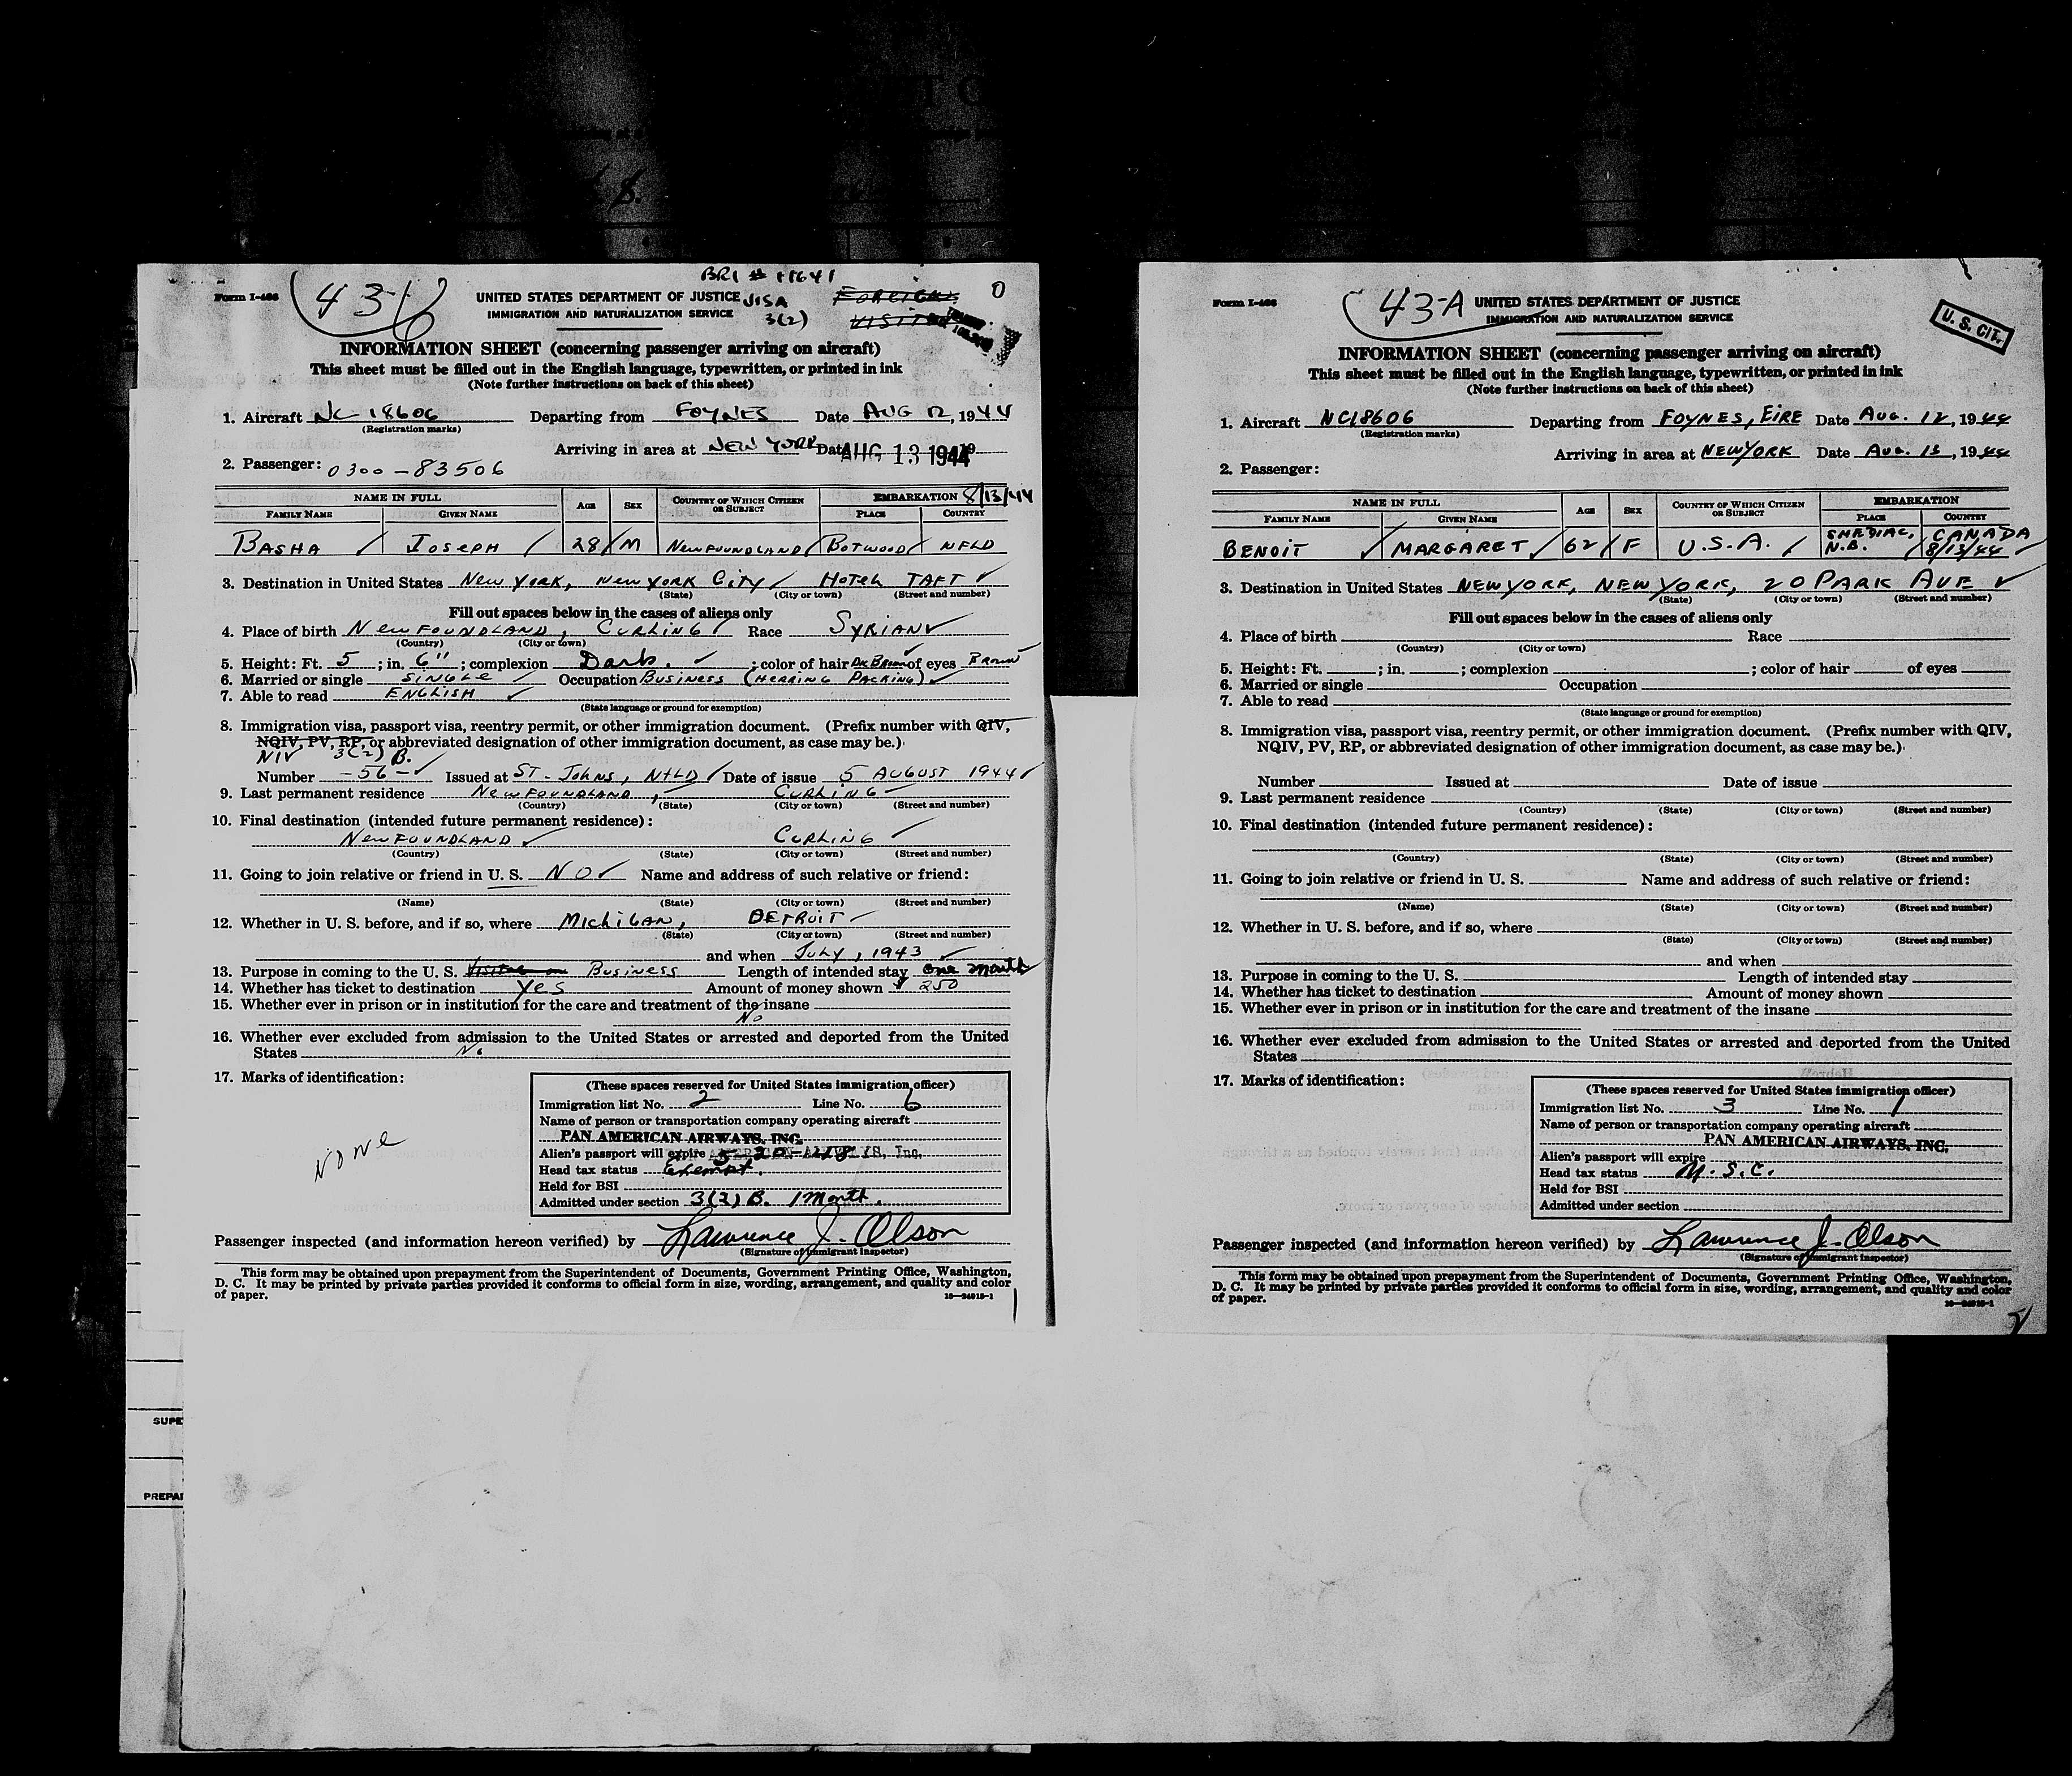 BRI # 11641
Form I-466
43
UNITED STATES DEPARTMENT OF JUSTICE VISA
IMMIGRATION AND NATURALIZATION SERVICE 3(2)
INFORMATION SHEET (concerning passenger arriving on aircraft)
This sheet must be filled out in the English language, typewritten, or printed in ink
(Note further instructions on back of this sheet)
1. Aircraft NC 18606 Departing from FOYNES Date AUG 12, 1944
(Registration marks)
Arriving in area at NEW YORK Date AUG 13 1944
2. Passenger: 0300-83506
NAME IN FULL AGE SEX COUNTRY OF WHICH CITIZEN OR SUBJECT EMBARKATION 8/13/44
FAMILY NAME GIVEN NAME PLACE COUNTRY
BASHA JOSEPH 28 M NEWFOUNDLAND BOTWOOD NFLD
3. Destination in United States NEW YORK, NEW YORK CITY HOTEL TAFT
(State) (City or town) (Street and number)
Fill out spaces below in the cases of aliens only
4. Place of birth NEWFOUNDLAND, CURLING Race SYRIAN
(Country) (City or town)
5. Height: Ft. 5 ; in. 6" ; complexion Dark. ; color of hair DK Brown of eyes BROWN
6. Married or single SINGLE Occupation BUSINESS (HERRING PACKING)
7. Able to read ENGLISH
(State language or ground for exemption)
8. Immigration visa, passport visa, reentry permit, or other immigration document. (Prefix number with QIV,
NQIV, PV, RP, or abbreviated designation of other immigration document, as case may be.)
NIV 3(2) B.
Number -56- Issued at ST. JOHNS, NFLD Date of issue 5 AUGUST 1944
9. Last permanent residence NEWFOUNDLAND, CURLING
(Country) (State) (City or town) (Street and number)
10. Final destination (intended future permanent residence):
NEWFOUNDLAND CURLING
(Country) (State) (City or town) (Street and number)
11. Going to join relative or friend in U. S. NO Name and address of such relative or friend:
(Name) (State) (City or town) (Street and number)
12. Whether in U. S. before, and if so, where MICHIGAN, DETROIT
(State) (City or town) (Street and number)
and when JULY, 1943
13. Purpose in coming to the U. S. BUSINESS Length of intended stay one month
14. Whether has ticket to destination Yes Amount of money shown $ 250
15. Whether ever in prison or in institution for the care and treatment of the insane
No
16. Whether ever excluded from admission to the United States or arrested and deported from the United
States No
17. Marks of identification:
NONE
(These spaces reserved for United States immigration officer)
Immigration list No. 2 Line No. 6
Name of person or transportation company operating aircraft
PAN AMERICAN AIRWAYS, INC.
Alien's passport will expire
Head tax status Exempt.
Held for BSI
Admitted under section 3(2) B. 1 Month.
Passenger inspected (and information hereon verified) by Lawrence J. Olson
(Signature of immigrant inspector)
This form may be obtained upon prepayment from the Superintendent of Documents, Government Printing Office, Washington,
D. C. It may be printed by private parties provided it conforms to official form in size, wording, arrangement, and quality and color
of paper.
16—24915-1
SUPE
PREPA
Form I-466
43-A
UNITED STATES DEPARTMENT OF JUSTICE
IMMIGRATION AND NATURALIZATION SERVICE
U. S. CIT.
INFORMATION SHEET (concerning passenger arriving on aircraft)
This sheet must be filled out in the English language, typewritten, or printed in ink
(Note further instructions on back of this sheet)
1. Aircraft NC18606 Departing from FOYNES, EIRE Date AUG. 12, 1944
(Registration marks)
Arriving in area at NEW YORK Date AUG. 13, 1944
2. Passenger:
NAME IN FULL AGE SEX COUNTRY OF WHICH CITIZEN OR SUBJECT EMBARKATION
FAMILY NAME GIVEN NAME PLACE COUNTRY
BENOIT MARGARET 62 F U.S.A. SHEDIAC, N.B. CANADA 8/13/44
3. Destination in United States NEW YORK, NEW YORK, 20 PARK AVE
(State) (City or town) (Street and number)
Fill out spaces below in the cases of aliens only
4. Place of birth Race
(Country) (City or town)
5. Height: Ft. ; in. ; complexion ; color of hair of eyes
6. Married or single Occupation
7. Able to read
(State language or ground for exemption)
8. Immigration visa, passport visa, reentry permit, or other immigration document. (Prefix number with QIV,
NQIV, PV, RP, or abbreviated designation of other immigration document, as case may be.)
Number Issued at Date of issue
9. Last permanent residence
(Country) (State) (City or town) (Street and number)
10. Final destination (intended future permanent residence):
(Country) (State) (City or town) (Street and number)
11. Going to join relative or friend in U. S. Name and address of such relative or friend:
(Name) (State) (City or town) (Street and number)
12. Whether in U. S. before, and if so, where
(State) (City or town) (Street and number)
and when
13. Purpose in coming to the U. S. Length of intended stay
14. Whether has ticket to destination Amount of money shown
15. Whether ever in prison or in institution for the care and treatment of the insane
16. Whether ever excluded from admission to the United States or arrested and deported from the United
States
17. Marks of identification:
(These spaces reserved for United States immigration officer)
Immigration list No. 3 Line No. 1
Name of person or transportation company operating aircraft
PAN AMERICAN AIRWAYS, INC.
Alien's passport will expire
Head tax status U.S.C.
Held for BSI
Admitted under section
Passenger inspected (and information hereon verified) by Lawrence J. Olson
(Signature of immigrant inspector)
This form may be obtained upon prepayment from the Superintendent of Documents, Government Printing Office, Washington,
D. C. It may be printed by private parties provided it conforms to official form in size, wording, arrangement, and quality and color
of paper.
16—24915-1